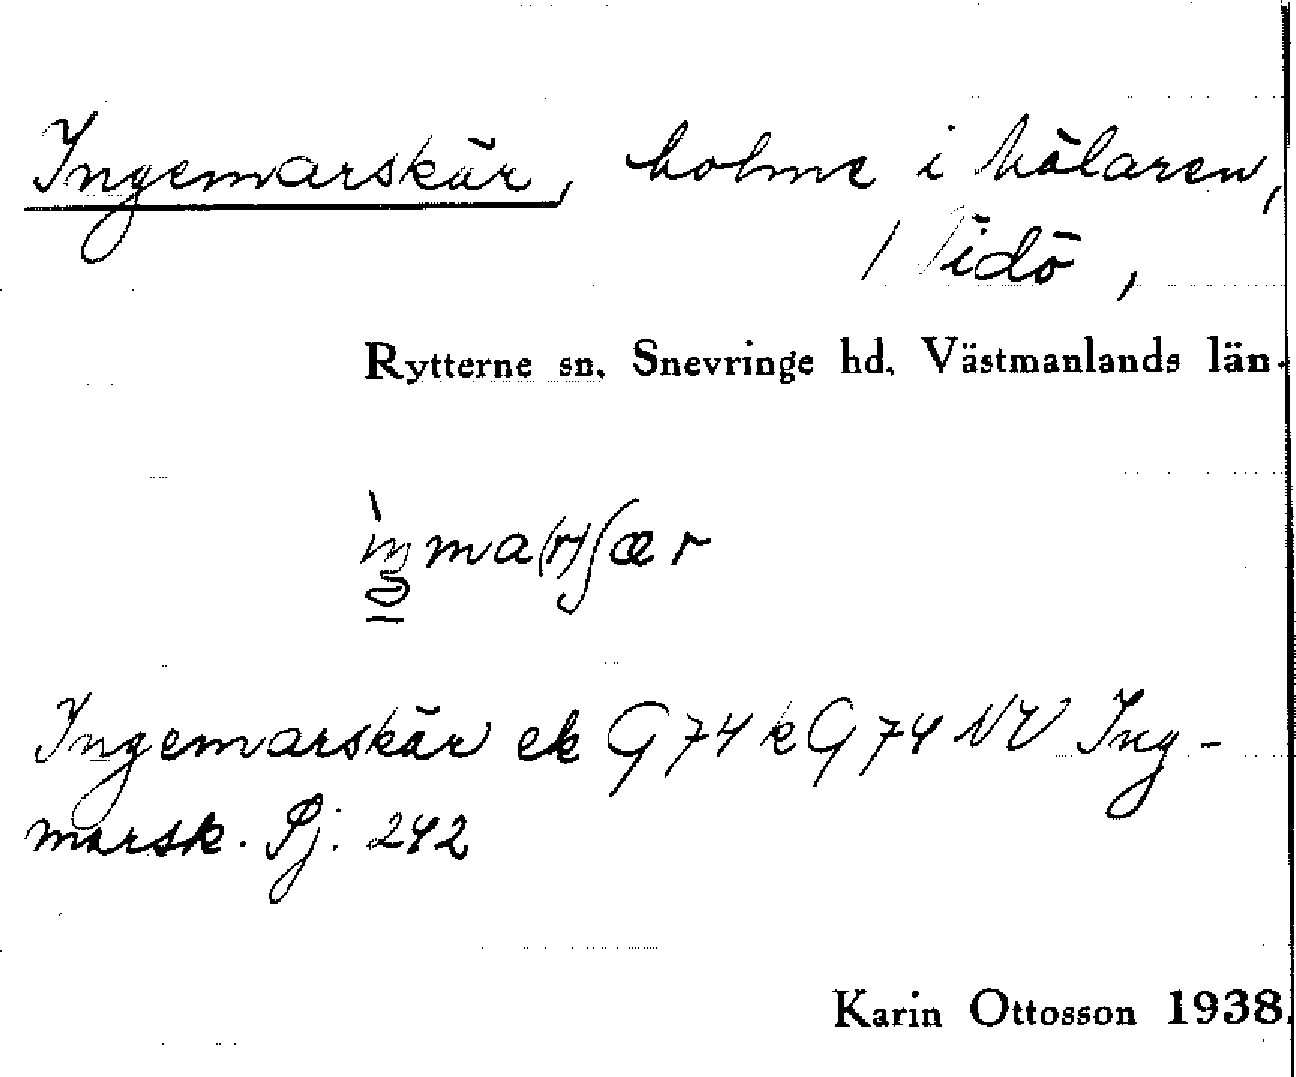 Ingemarskär, holme i Mälaren,
/ Tidö,
Rytterne sn. Snevringe hd. Västmanlands län.
ma(r)ʃær
Ingemarskär ek G 74 k G 74 NV Ing-
marsk. Pj. 242
Karin Ottosson 1938.